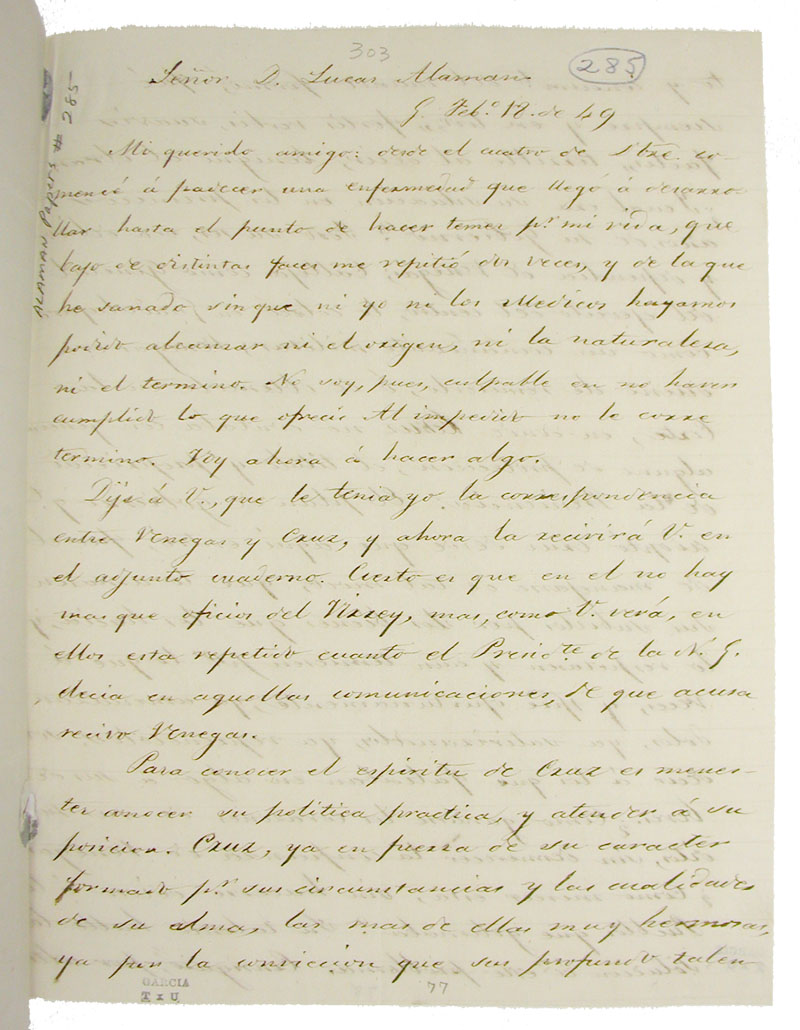 303
285
ALAMAN Papers # 285
Señor D. Lucas Alaman
G. Feb.º 18. de 49
Mi querido amigo: desde el cuatro de Stxe. co-
mencé á padecer una enfermedad que llegó á desarro-
llar hasta el punto de hacer temer pr. mi vida, que
bajo de distintas faces me repitió dos veces, y de la que
he sanado sin que ni yo ni los Medicos hayamos
podido alcansar ni el origen, ni la naturalesa,
ni el termino. No soy, pues, culpable en no haver
cumplido lo que ofrecí. Al impedido no le corre
termino. Voy ahora á hacer algo.
Dije á V., que le tenia yo la correspondencia
entre Venegas y Cruz, y ahora la recivirá V. en
el adjunto cuaderno. Cierto es que en el no hay
mas que oficios del Virrey, mas, como V. verá, en
ellos esta repetido cuanto el Presid.te de la N. G.
decia en aquellas comunicaciones, de que acusa
recivo Venegas.
Para conocer el espiritu de Cruz es menes-
ter conocer su politica practica, y atender á su
posicion. Cruz, ya en fuerza de su caracter
formado pr. sus circumstancias y las cualidades
de su alma, las mas de ellas muy hermosas,
ya por la conviccion que sus profundo talen
GARCIA
TxU
77